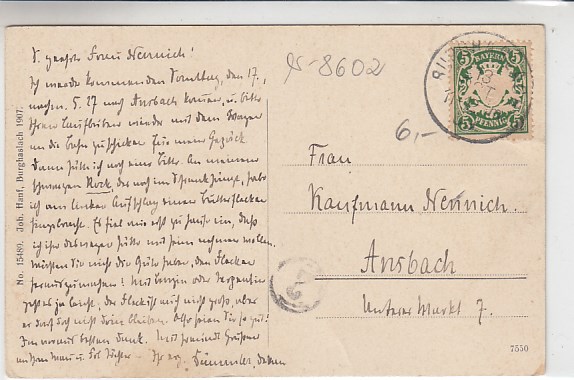 geehrte Frau Nennich!
Ich werde kommenden Sonntag, den 17.,
nachm. 5.27 nach Ansbach kommen, u. bitte
Ihren Laufburschen wieder mit dem Wagen
an die Bahn zu schicken für mein Gepäck
Dann hätte ich noch eine Bitte. An meinem
schwarzen Rock, der noch im Schrank hängt, habe
ich am linken Aufschlag einen Butterflecken
hingebracht. Es fiel mir erst zu Hause ein, daß
ich ihn deswegen hätte mit heim nehmen wollen.
Möchten Sie nicht die Güte haben, den Flecken
herauszumachen! Mit Benzin oder Terpentin
geht es ja leicht, der Fleck ist auch nicht groß, aber
er darf doch nicht drin bleiben. Also seien Sie so gut!
Im voraus besten Dank. Mit freundl. Grüßen
Ihr erg.
No. 15489. Joh. Hanf, Burghaslach 1907.
8602
6,-
BAYERN
5 5
5 5
PFENNIG
Frau
Kaufmann Nennich.
Ansbach
Unterer Markt 7.
7550